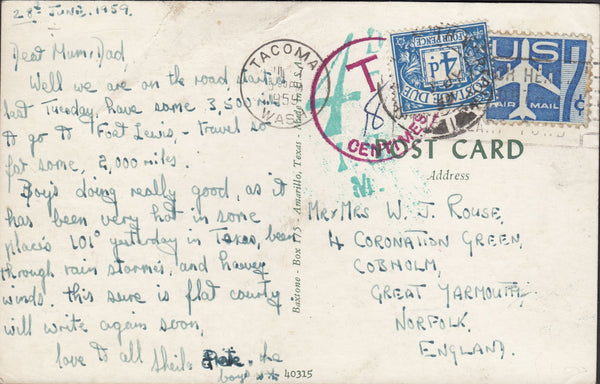 28th June, 1959.
Dear Mum, Dad
Well we are on the road started
last Tuesday, have some 3,500 miles
to go to "Fort Lewis", travel so
far some, 2,000 miles.
Boys doing really good, as it
has been very hot in some
places 101° yesterday in Texas, been
through rain stormes, and heavey
winds. this sure is flat county
will write again soon,
love to all Sheila Pete. the
boys
TACOMA
1959
WASH
T
CENTIMES
18
FOUR PENCE
4d
POSTAGE DUE
US
AIR MAIL
7¢
POST CARD
Address
Mr & Mrs W. J. Rouse,
4 Coronation Green,
Cobholm,
Great Yarmouth,
Norfolk,
England.
Baxtone - Box 175 - Amarillo, Texas - Made in U.S.A.
40315